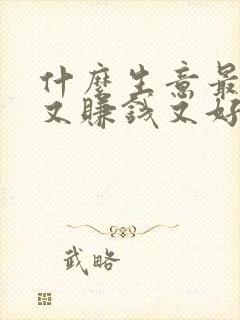 什麼生意最
又賺錢又好
武略